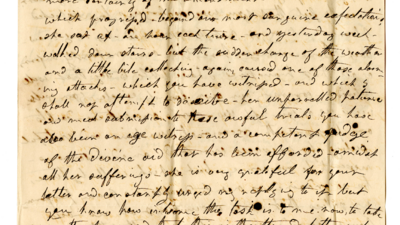 which progress'd beyond our most sanguine expectations
she sat up an hour each time and yesterday week
walked down stairs but the sudden change of the weather
and a little bile collecting again caused one of those alarm
ing attacks which you have witness'd and which I
shall not attempt to describe her unparralled patience
and meed submission to these awful trials you have
also been an eye witness and a competent judge
of the divine aid that has been afforded amidst
all her sufferings she is very grateful for your
letter and constantly urged my replying to it but
you know how irksome this task is to me now, to take